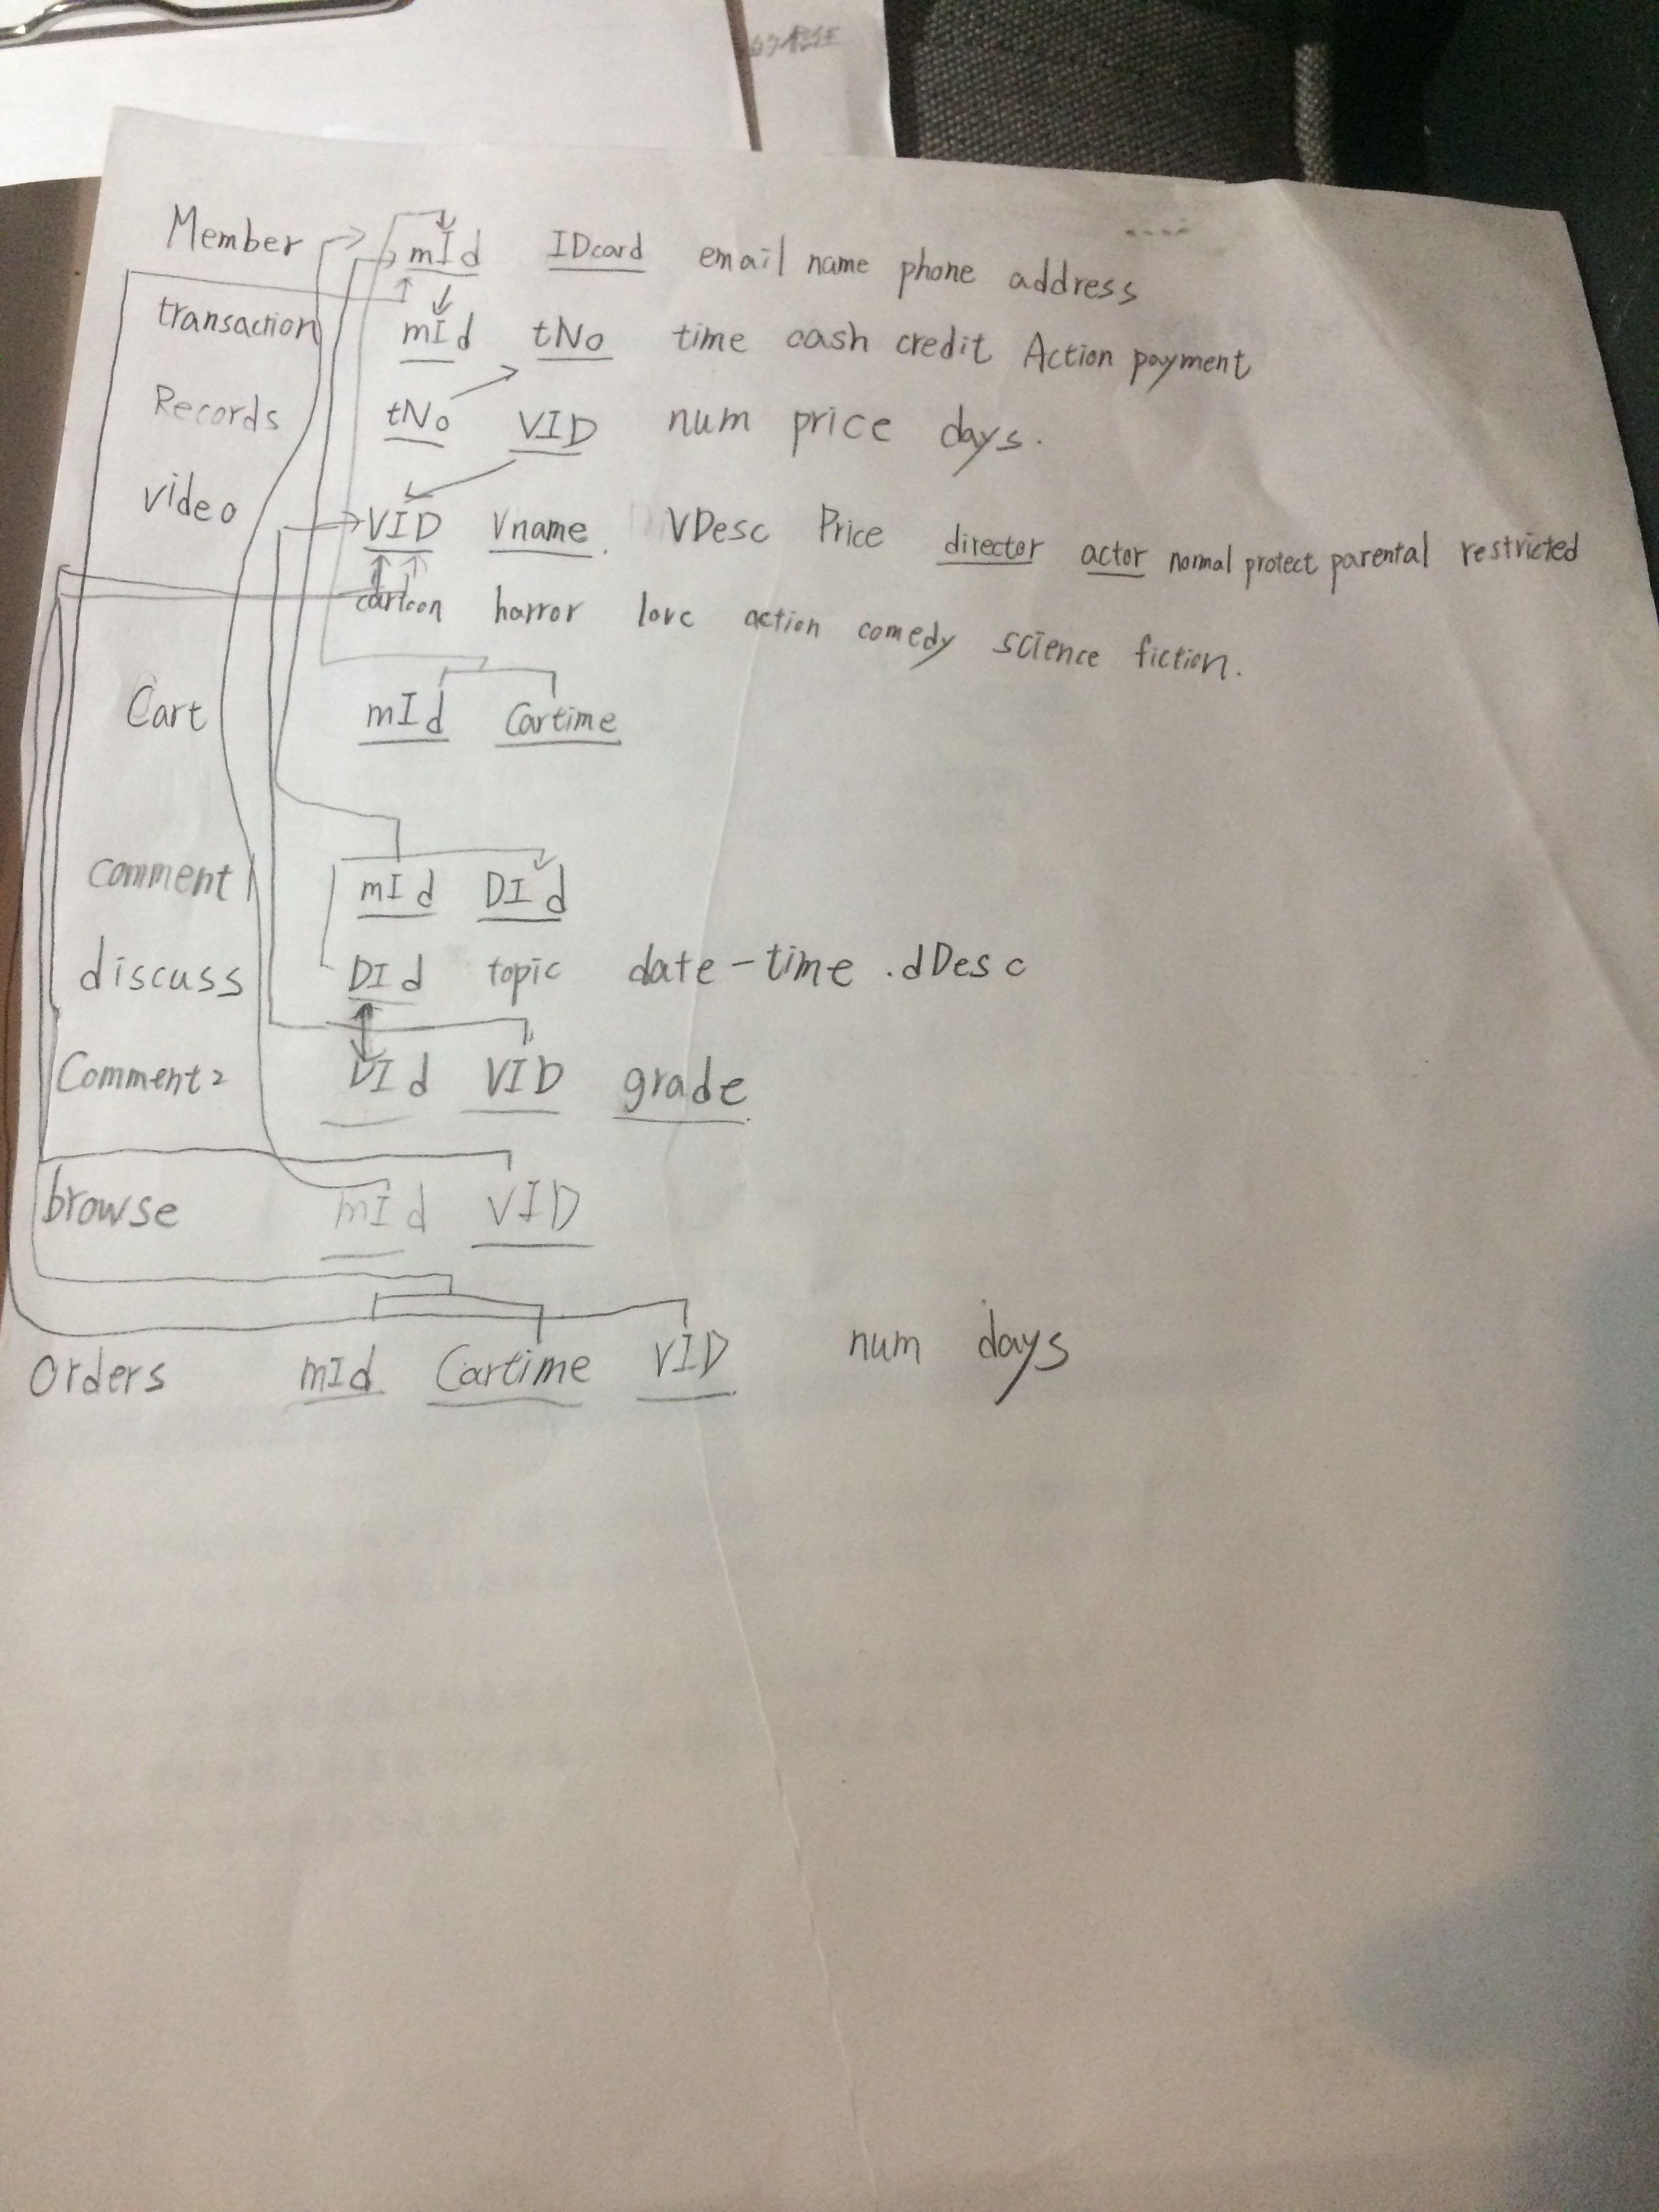 Member mId IDcard email name phone address
transaction mId tNo time cash credit Action payment
Records tNo VID num price days.
video VID Vname. VDesc Price director actor normal protect parental restricted
cartoon harror love action comedy science fiction.
Cart mId Cartime
comment mId DId
discuss DId topic date-time .dDesc
Comment2 DId VID grade
browse mId VID
Orders mId Cartime VID num days